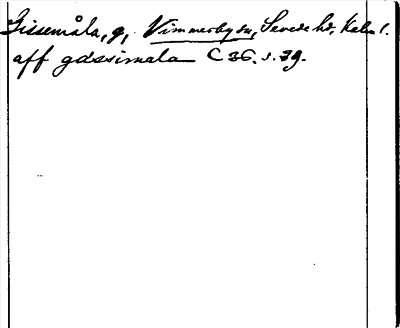 Gissemåla, g, Vimmerby sn, Sevede hd, Kalm l.
aff gdssimala C 36. s. 39.